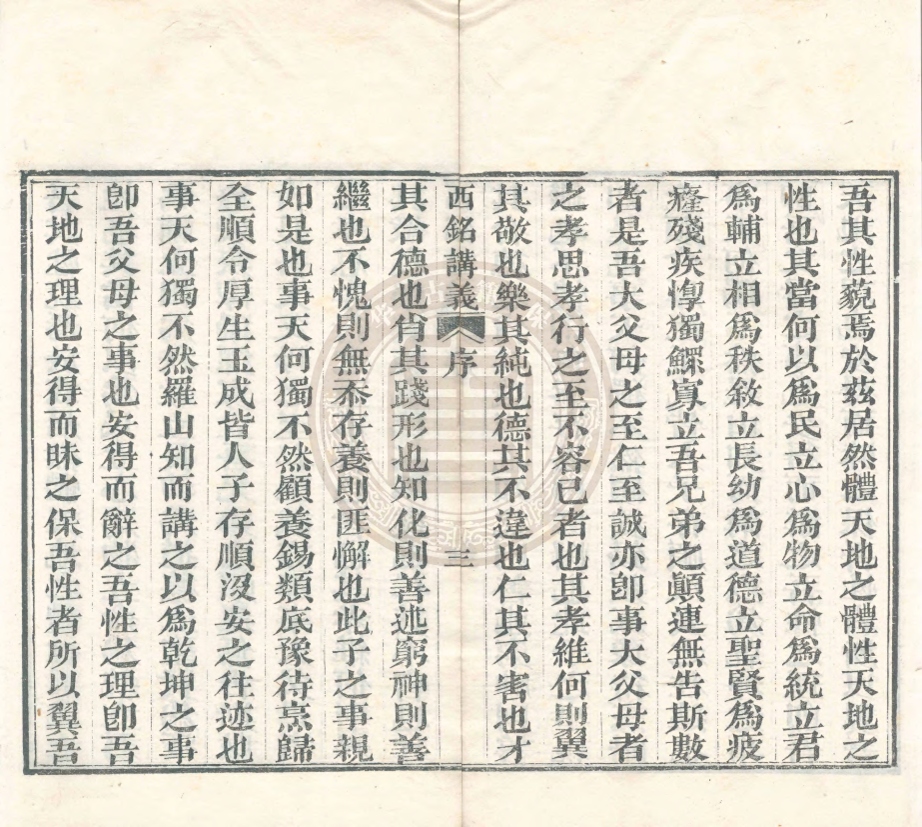 吾其性藐焉於茲居然體天地之體性天地之
性也其當何以爲民立心爲物立命爲統立君
爲輔立相爲秩敘立長幼爲道德立聖賢爲疲
癃殘疾惸獨鰥寡立吾兄弟之顚連無告斯數
者是吾大父母之至仁至誠亦卽事大父母者
之孝思孝行之至不容已者也其孝維何則翼
其敬也樂其純也德其不違也仁其不害也才
西銘講義 序 三
其合德也肖其踐形也知化則善述窮神則善
繼也不愧則無忝存養則匪懈也此子之事親
如是也事天何獨不然顧養錫類底豫待烹歸
全順令厚生玉成皆人子存順沒安之往迹也
事天何獨不然羅山知而講之以爲乾坤之事
卽吾父母之事也安得而辭之吾性之理卽吾
天地之理也安得而昧之保吾性者所以翼吾